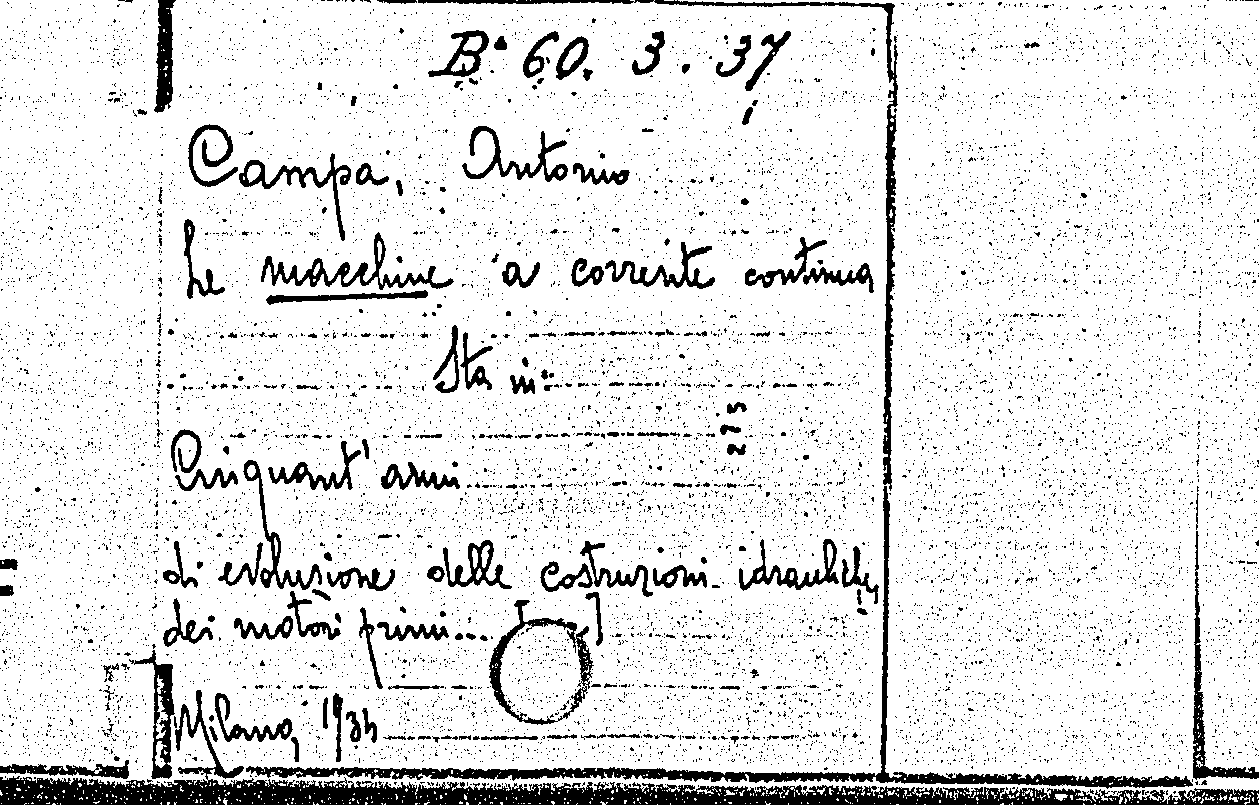 B. 60. 3. 37
Campa, Antonio
Le macchine a corrente continua
Sta in:
275
Cinquant'anni
di evoluzione delle costruzioni idrauliche,
dei motori primi... [ ]
Milano, 1934